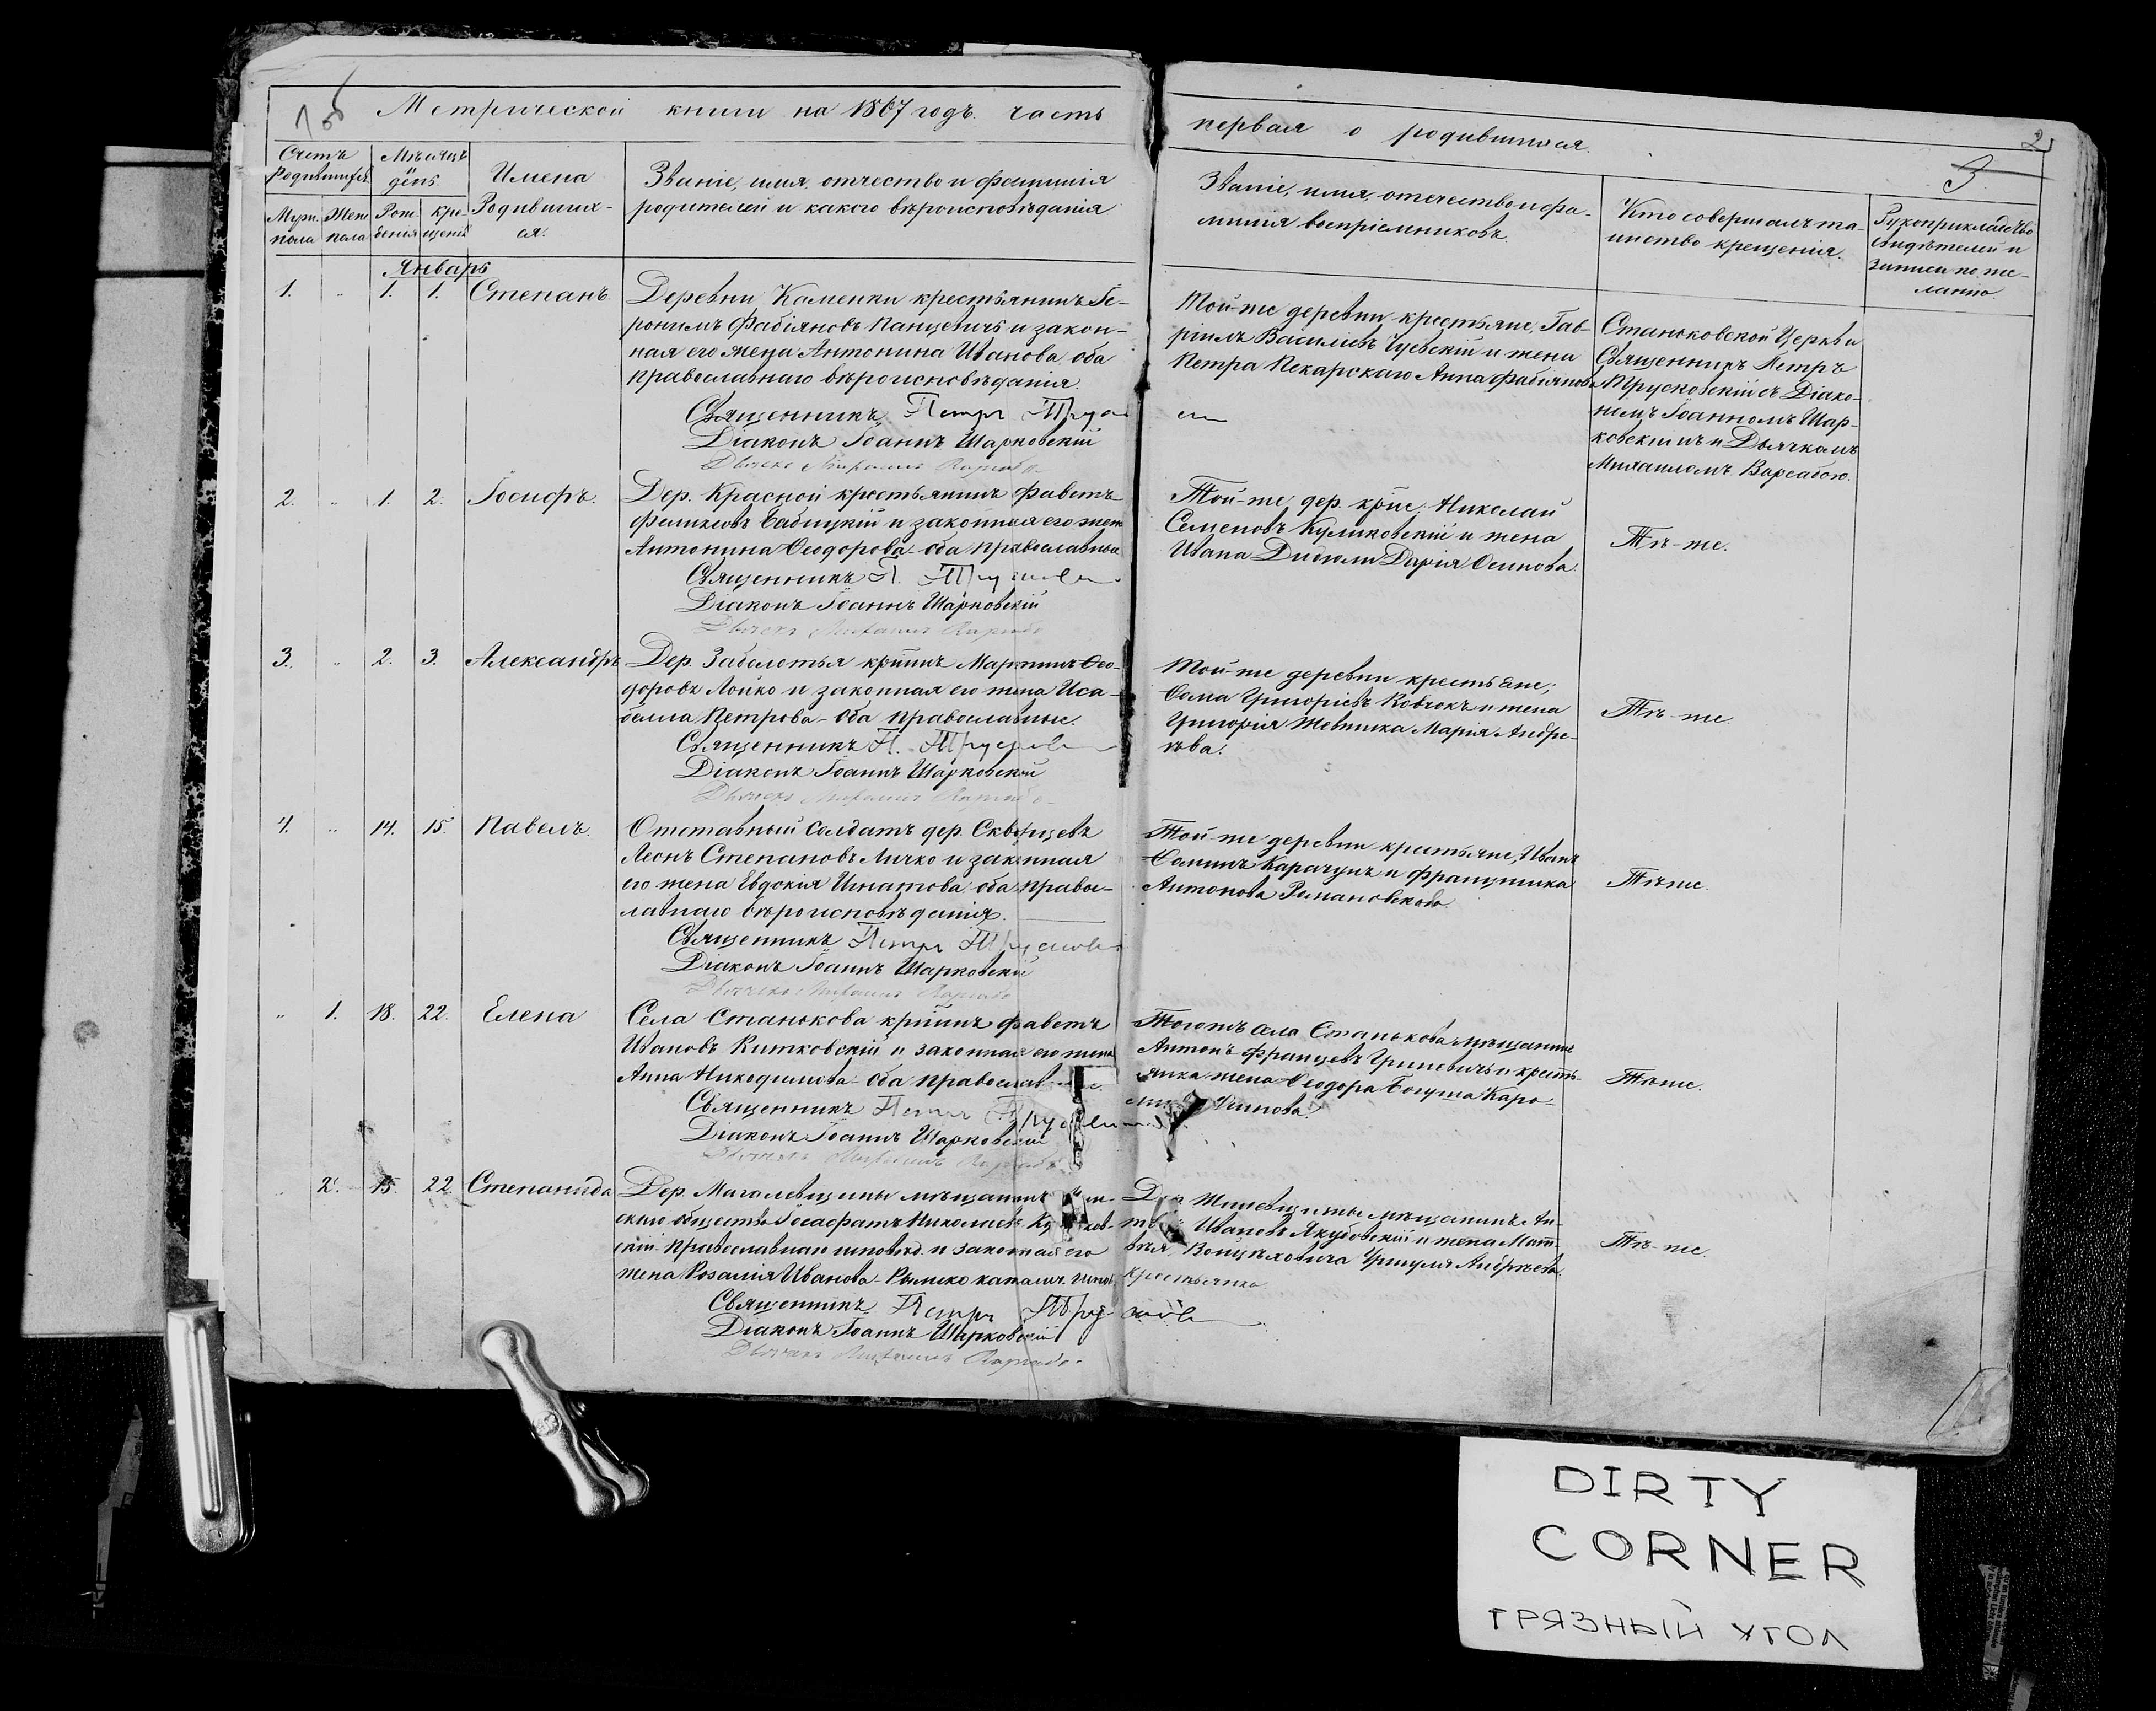 Метрической книги на 1867 годъ. часть
первая о родившихся.
2
3
Счетъ Родившихъ
Мѣсяцъ день
Имена Родивших-ся.
Званіе, имя, отчество и фамилія
родителей и какого вѣроисповѣданія
Муж. пола
Жен. пола
Рожденія
крещенія
Званіе, имя, отечество и фа-
милія воспріемниковъ.
Кто совершалъ та-
инство крещенія.
Рукоприкладство
свидѣтелей и
записи по же-
ланію.
Январь
1. „ 1. 1. Степанъ
Деревни Каменки крестьянинъ Іе-
ронимъ Фабіяновъ Панцевичъ и закон-
ная его жена Антонина Иванова оба
православнаго вѣроисповѣданія
Священникъ Петръ
Діаконъ Іоаннъ Шарковскій
Дьячекъ Михаилъ
Той-же деревни крестьяне, Гав-
ріилъ Василіевъ и жена
Петра Пекарскаго Анна Фабіянова
Станьковской Церкви
Священникъ Петръ
Прусковскій съ Діако-
номъ Іоанномъ Шар-
ковскимъ и Дьячкомъ
Михаиломъ Варсабою.
2. „ 1. 2. Іосифъ.
Дер. Красной крестьянинъ Фаветъ
Феликсовъ Бабицкій и законная его жена
Антонина Ѳеодорова - оба православные
Священникъ П.
Діаконъ Іоаннъ Шарковскій
Дьячекъ Михаилъ
Той-же дер. крне: Николай
Семеновъ Куликовскій и жена
Ивана Дарія Осипова.
Тѣ-же.
3. „ 2. 3. Александръ
Дер. Заболотья крнинъ Мартинъ Ѳео-
доровъ Лойко и законная его жена Иса-
белла Петрова - Оба православные.
Священникъ П.
Діаконъ Іоаннъ Шарковскій
Дьячекъ Михаилъ
Той-же деревни крестьяне;
Ѳома Григоріевъ Ковчокъ и жена
Григорія Жевжика Марія Андре-
ѣва.
Тѣ-же
4. „ 14. 15. Павелъ.
Отставный Солдатъ дер.
Леонъ Степановъ Личко и законная
его жена Евдокія Игнатова оба право-
лавнаго вѣроисповѣданія.
Священникъ Петръ
Діаконъ Іоаннъ Шарковскій
Дьячекъ Михаилъ
Той-же деревни крестьяне, Иванъ
Ѳоминъ Карачунъ и Францишка
Антонова Романовская.
Тѣже.
„ 1. 18. 22. Елена
Села Станькова крнинъ Фаветъ
Ивановъ Китковскій и законная его жена
Анна Никодимова - Оба
Священникъ Петръ
Діаконъ Іоаннъ Шарковскій
Дьячекъ Михаилъ
Тогожъ села Станькова мѣщанинъ
Антонъ Францевъ Гриневичъ и кресть-
янка жена Ѳеодора Богуша Каро-
Тѣже.
„ 2. 15. 22. Степанида
Дер. мѣщанинъ
скаго общества Іосафатъ Николаевъ
скій православнаго исповѣд. и законная его
жена Розалія Иванова - Римско католич.
Священникъ Петръ
Діаконъ Іоаннъ Шарковскій
Дьячекъ Михаилъ
мѣщанинъ Ан-
Ивановъ Якубовскій и жена Мат-
вѣя Войцеховича Уршуля Андреева.
Крестьянка
Тѣ-же.
DIRTY
CORNER
ГРЯЗНЫЙ УГОЛ